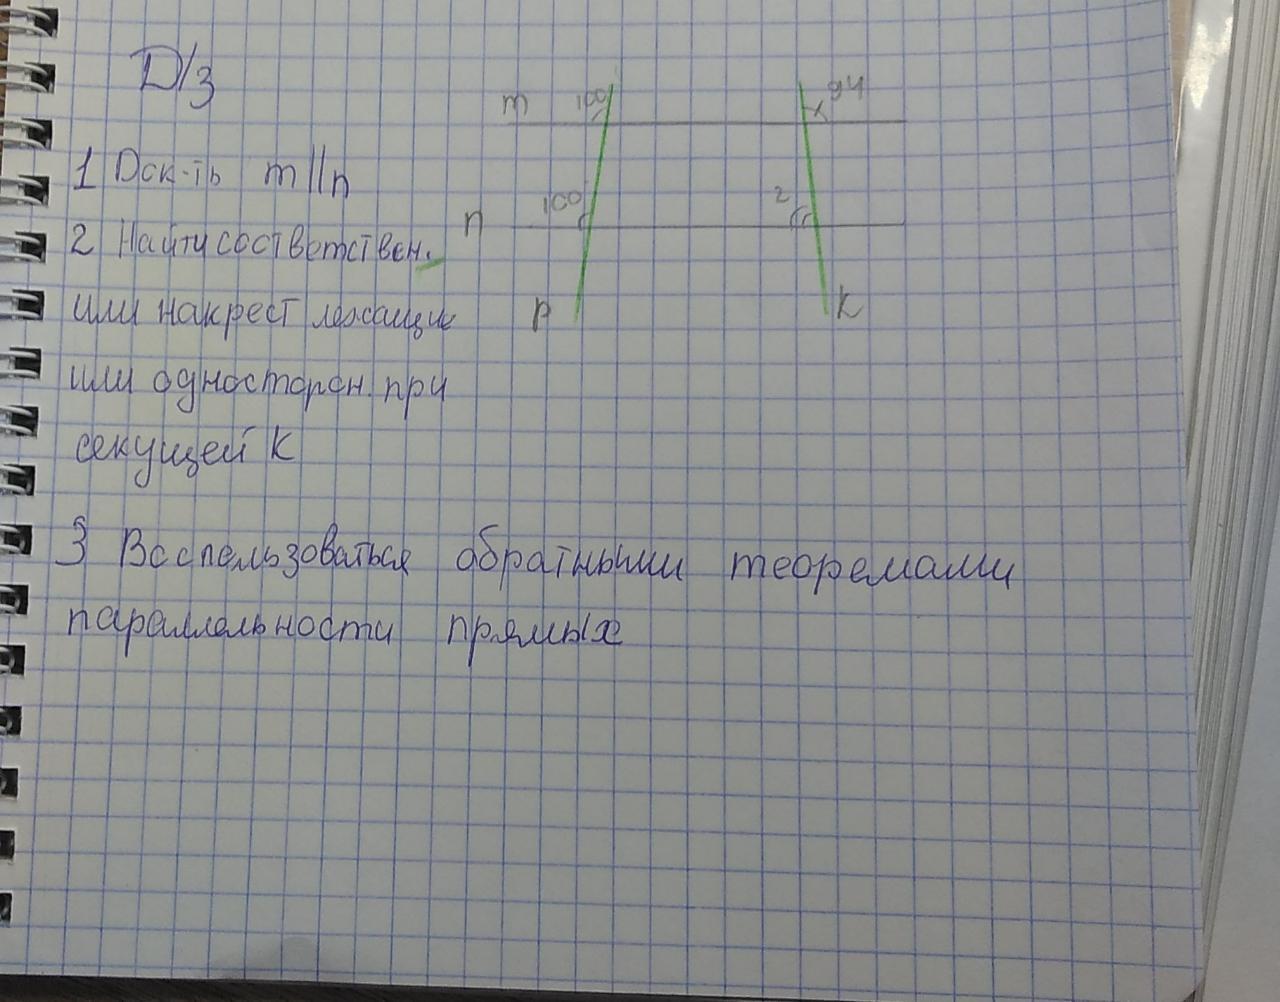 Д/з
m 100 94
1 Док-ть m||n
100 2
n
2 Найти соответствен.
или накрест лежащие
p k
или односторон. при
секущей k
3 Воспользоваться обратными теоремами
параллельности прямых